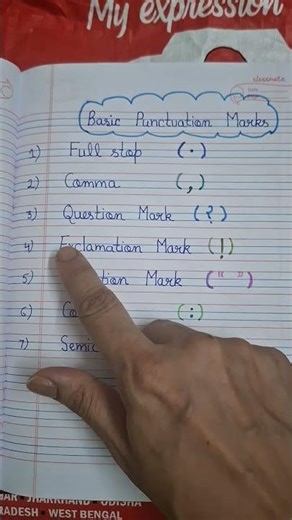 My expression
classmate
Basic Punctuation Marks
1) Full stop (.)
2) Comma (,)
3) Question Mark (?)
4) Exclamation Mark (!)
5) Mark (" ")
6) (:)
7)
JHARKHAND • ODISHA
WEST BENGAL